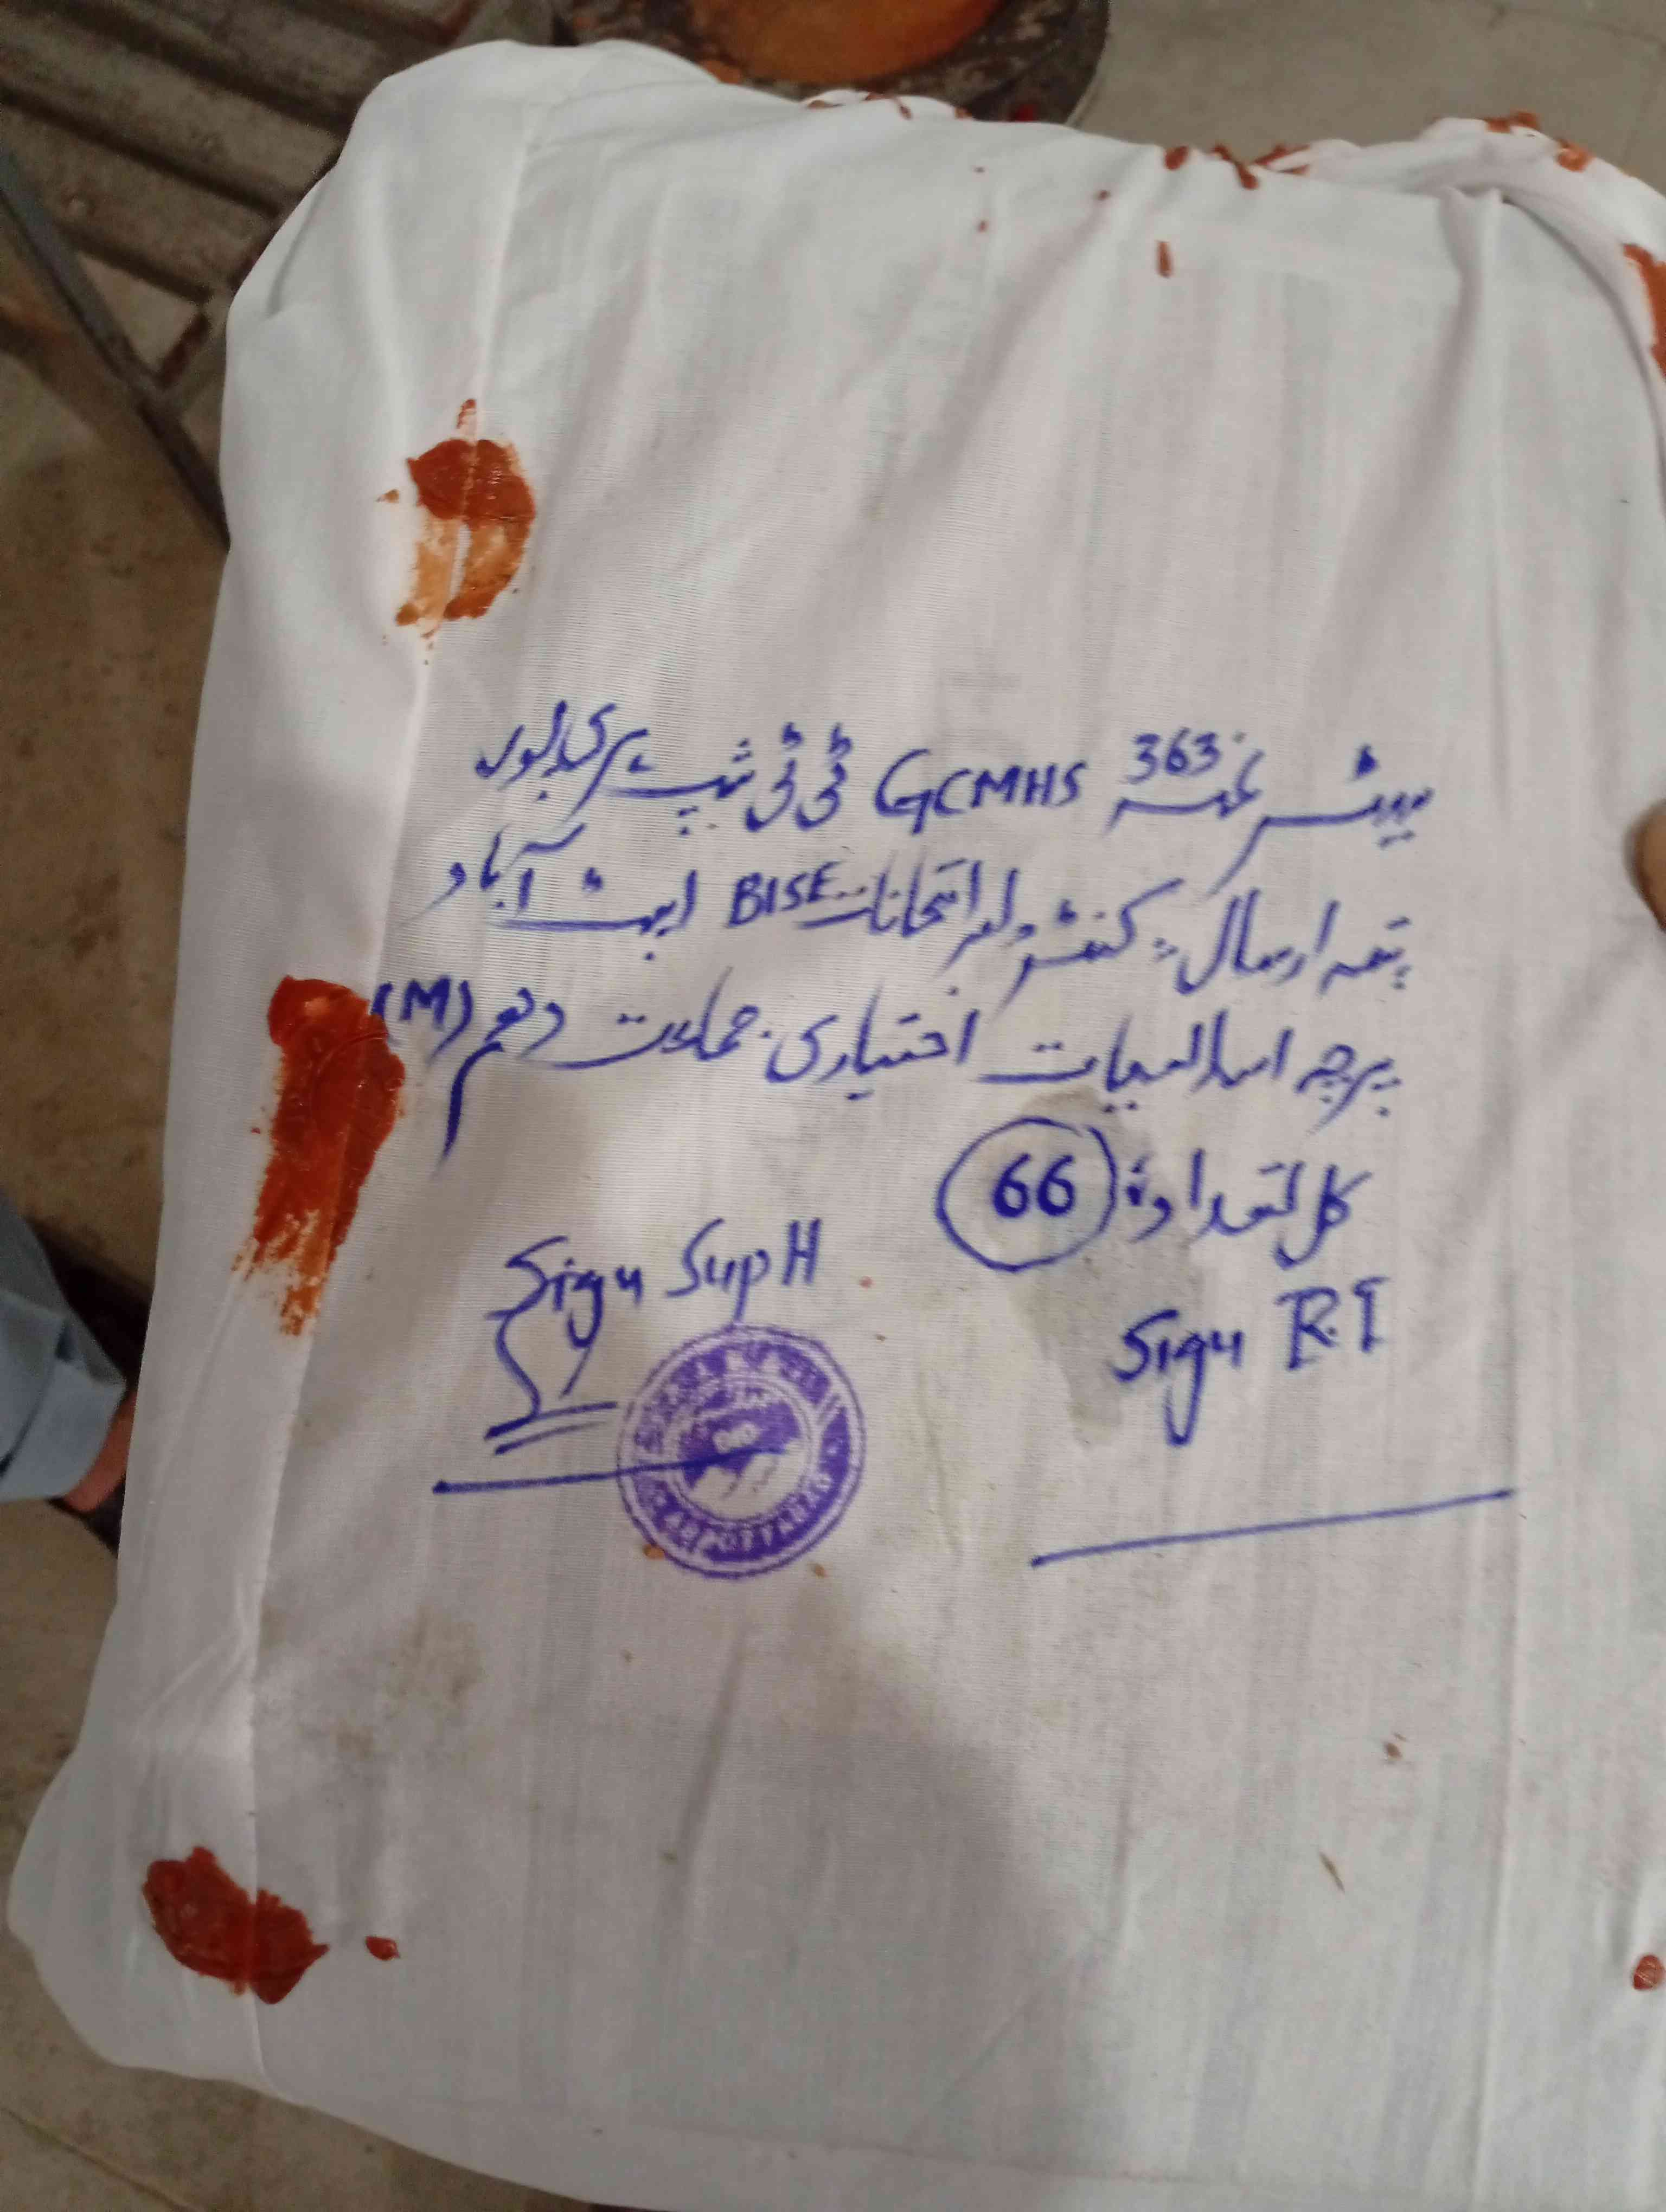 سینٹر نمبر 363 GCMHS ٹی ٹی شپ ہری پور
پتہ ارسال: کنٹرولر امتحانات BISE ایبٹ آباد
پرچہ اسلامیات اختیاری جماعت دہم (M)
کل تعداد: 66
Sign SupH
Sign R.I
ABBOTTABAD